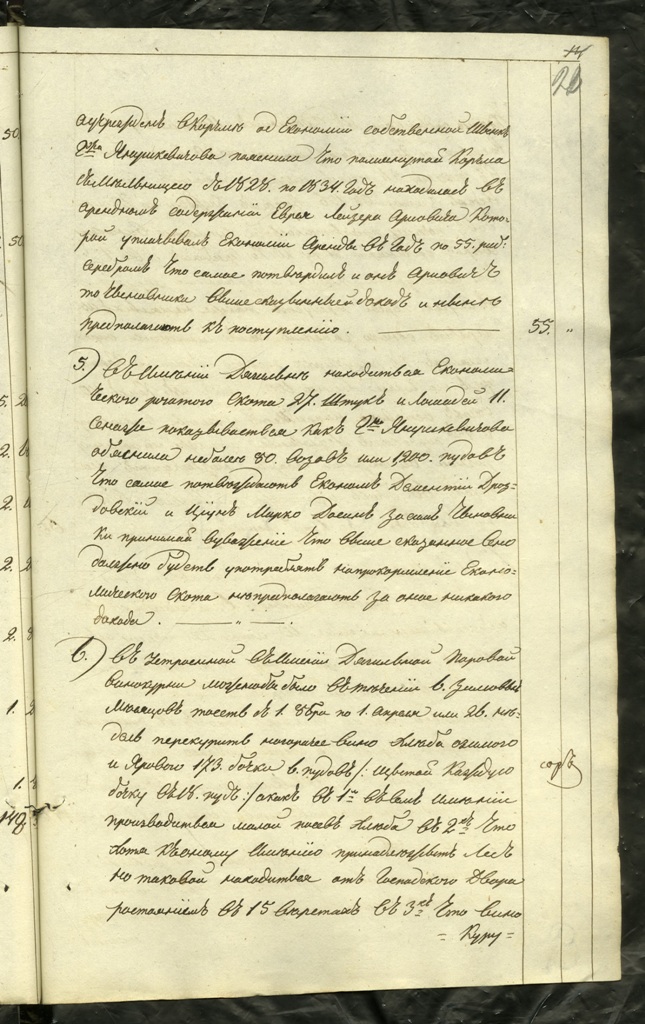 14
20
аучрежденъ вкорчмъ од Економіи собственной Шенкъ
Г-жа Янушкевичова пояснила что помянутой Корчма
съ мельницею съ 1828. по 1834. Годъ находилась въ
арендномъ содержаніи Еврея Лейзера Ароновича Кото=
рой уплачивалъ Економіи Аренды въ Годъ по 55. руб:
серебромъ что самое потвердилъ и онъ Ароновичъ
то чиновники выше сказанный доходъ и нынъ
предполагаютъ къ поступленію. 55. „
5.) Въ Имъніи находится Економи
ческого рогатого Скота 27. Штукъ и Лошадей 11.
Сенаже показывается какъ Г-жа Янушкевичова
объяснила неболее 80. возовъ или 1,200. пудовъ
что самое потверждаютъ Економъ Дементій Дроз=
довскій и Марко засимъ чиновни
ки принимая вуваженіе что выше сказанное Сено
должно будетъ употреблять напрокормленіе Еконо=
мического Скота непредполагаютъ за оное никакого
дохода. — „ —
6.) Въ устроенной въ Имъніи Паровой
винокурни можнобы было въ теченіи 6. зимовыхъ
Мъсяцовъ тоесть съ 1. 8бра по 1. Апреля или 26. нъ=
дель перекурить на горячее вино хлъба озимого
и Ярового 173. бочки в. пудовъ /: щитая каждую
бочку въ 18. пуд: / акакъ въ 1-хъ въсемъ имъніи
производится малой посевъ хлъба въ 2-хъ что
хотя къоному Имънію принадлежитъ Лесъ
но таковой находится отъ Господского Двора
ростояніемъ въ 15 верстахъ въ 3-хъ что вино
= куру=
50
50
5.
2.
2.
2.
2. 8
1. 2
1.
149